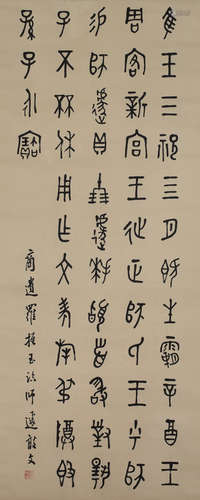 隹王三祀三月既生霸辛酉王
周客新宮王征正師氏王乎師
師遽貝朋遽拜稽首敢對揚
子不休用乍文考旄叔尊𣪘
孫子永寶
商遺羅振玉臨師遽敦文